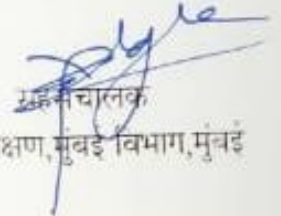 सहसंचालक
क्षण,मुंबई विभाग,मुंबई